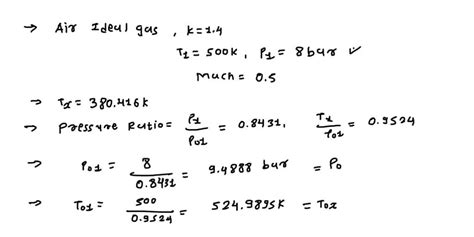 → Air Ideal gas , K=1.4
T1 = 500K , P1 = 8bar ✓
Mach = 0.5
→ Tx = 380.416K
→ Pressure Ratio = P1/P01 = 0.8431, Tx/P01 = 0.9524
→ P01 = 8/0.8431 = 9.4888 bar = P0
→ T01 = 500/0.9524 = 524.9895K = T0x